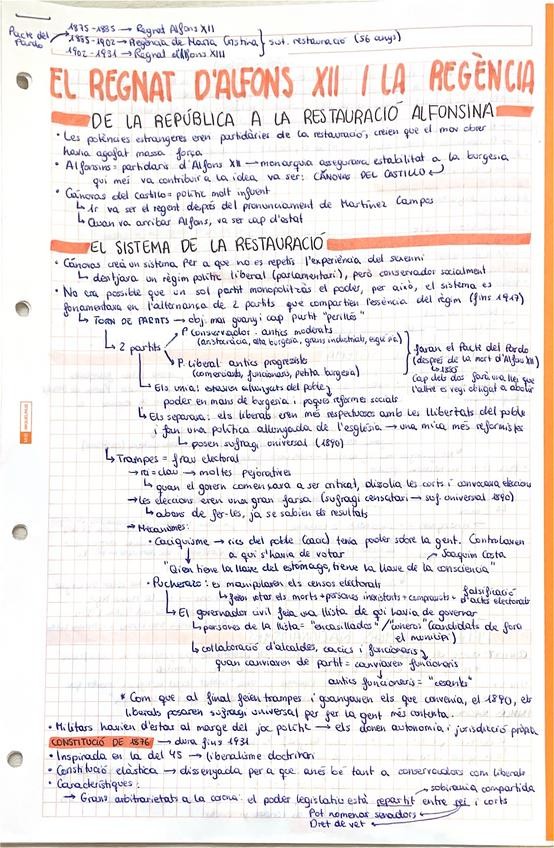 Pacte del Pardo
1875-1885 → Regnat Alfons XII
1885-1902 → Regència de Maria Cristina
1902-1931 → Regnat d'Alfons XIII
sist. restauració (56 anys)
EL REGNAT D'ALFONS XII I LA REGÈNCIA
DE LA REPÚBLICA A LA RESTAURACIÓ ALFONSINA
• Les potències estrangeres eren partidàries de la restauració, creien que el mov. obrer
havia agafat massa força
• Alfonsins = partidaris d'Alfons XII → monarquia assegurava estabilitat a la burgesia
qui més va contribuir a la idea va ser: CÁNOVAS DEL CASTILLO
• Cánovas del Castillo = polític molt influent
↳ 1r va ser el regent després del pronunciament de Martínez Campos
↳ Quan va arribar Alfons, va ser cap d'estat
EL SISTEMA DE LA RESTAURACIÓ
• Cánovas creà un sistema per a que no es repetís l'experiència del sexenni
↳ desitjava un règim polític liberal (parlamentari), però conservador socialment
• No era possible que un sol partit monopolitzés el poder, per això, el sistema es
fonamentava en l'alternança de 2 partits que compartien l'essència del règim (fins 1917)
↳ TORN DE PARTITS → obj. mai guanyi cap partit "perillós"
↳ 2 partits
P. conservador: antics moderats
(aristocràcia, alta burgesia, grans industrials, església)
P. liberal: antics progressistes
(comerciants, funcionaris, petita burgesia)
faran el Pacte del Pardo
(després de la mort d'Alfons XII)
↳ 1885
Cap dels dos farà una llei que
l'altre es vegi obligat a abolir
↳ Els unia: estaven allunyats del poble
poder en mans de burgesia i poques reformes socials
↳ Els separava: els liberals eren més respectuosos amb les llibertats del poble
i fan una política allunyada de l'església → una mica més reformistes
↳ posen sufragi universal (1890)
↳ Trampes = frau electoral
→ rei = clau → moltes pejoratives
↳ quan el govern començava a ser criticat, dissolia les corts i convocava eleccions
→ les eleccions eren una gran farsa (sufragi censatari → suf. universal 1890)
↳ abans de fer-les, ja se sabien els resultats
→ Mecanismes:
• Caciquisme → rics del poble (cacic) tenia poder sobre la gent. Controlaven
a qui s'havia de votar
Joaquim Costa
"Quien tiene la llave del estómago, tiene la llave de la consciencia"
• Pucherazo: es manipulaven els censos electorals
↳ feien votar els morts + persones inexistents + compravots + falsificació
d'actes electorals
↳ El governador civil feia una llista de qui havia de governar
↳ persones de la llista= "encasillados" / "cuneros" (candidats de fora
el municipi)
↳ col·laboració d'alcaldes, cacics i funcionaris
quan canviaven de partit = canviaven funcionaris
antics funcionaris = "cesants"
* Com que al final feien trampes i guanyaven els que convenia, el 1890, els
liberals posaren sufragi universal per fer la gent més contenta.
• Militars havien d'estar al marge del joc polític → els donen autonomia i jurisdicció pròpia
CONSTITUCIÓ DE 1876 → dura fins 1931
• Inspirada en la del 45 → liberalisme doctrinari
• Constitució elàstica → dissenyada per a que anés bé tant a conservadors com liberals
• Característiques:
sobirania compartida
→ Grans arbitrarietats a la corona: el poder legislatiu està repartit entre rei i corts
Pot nomenar senadors
Dret de vet